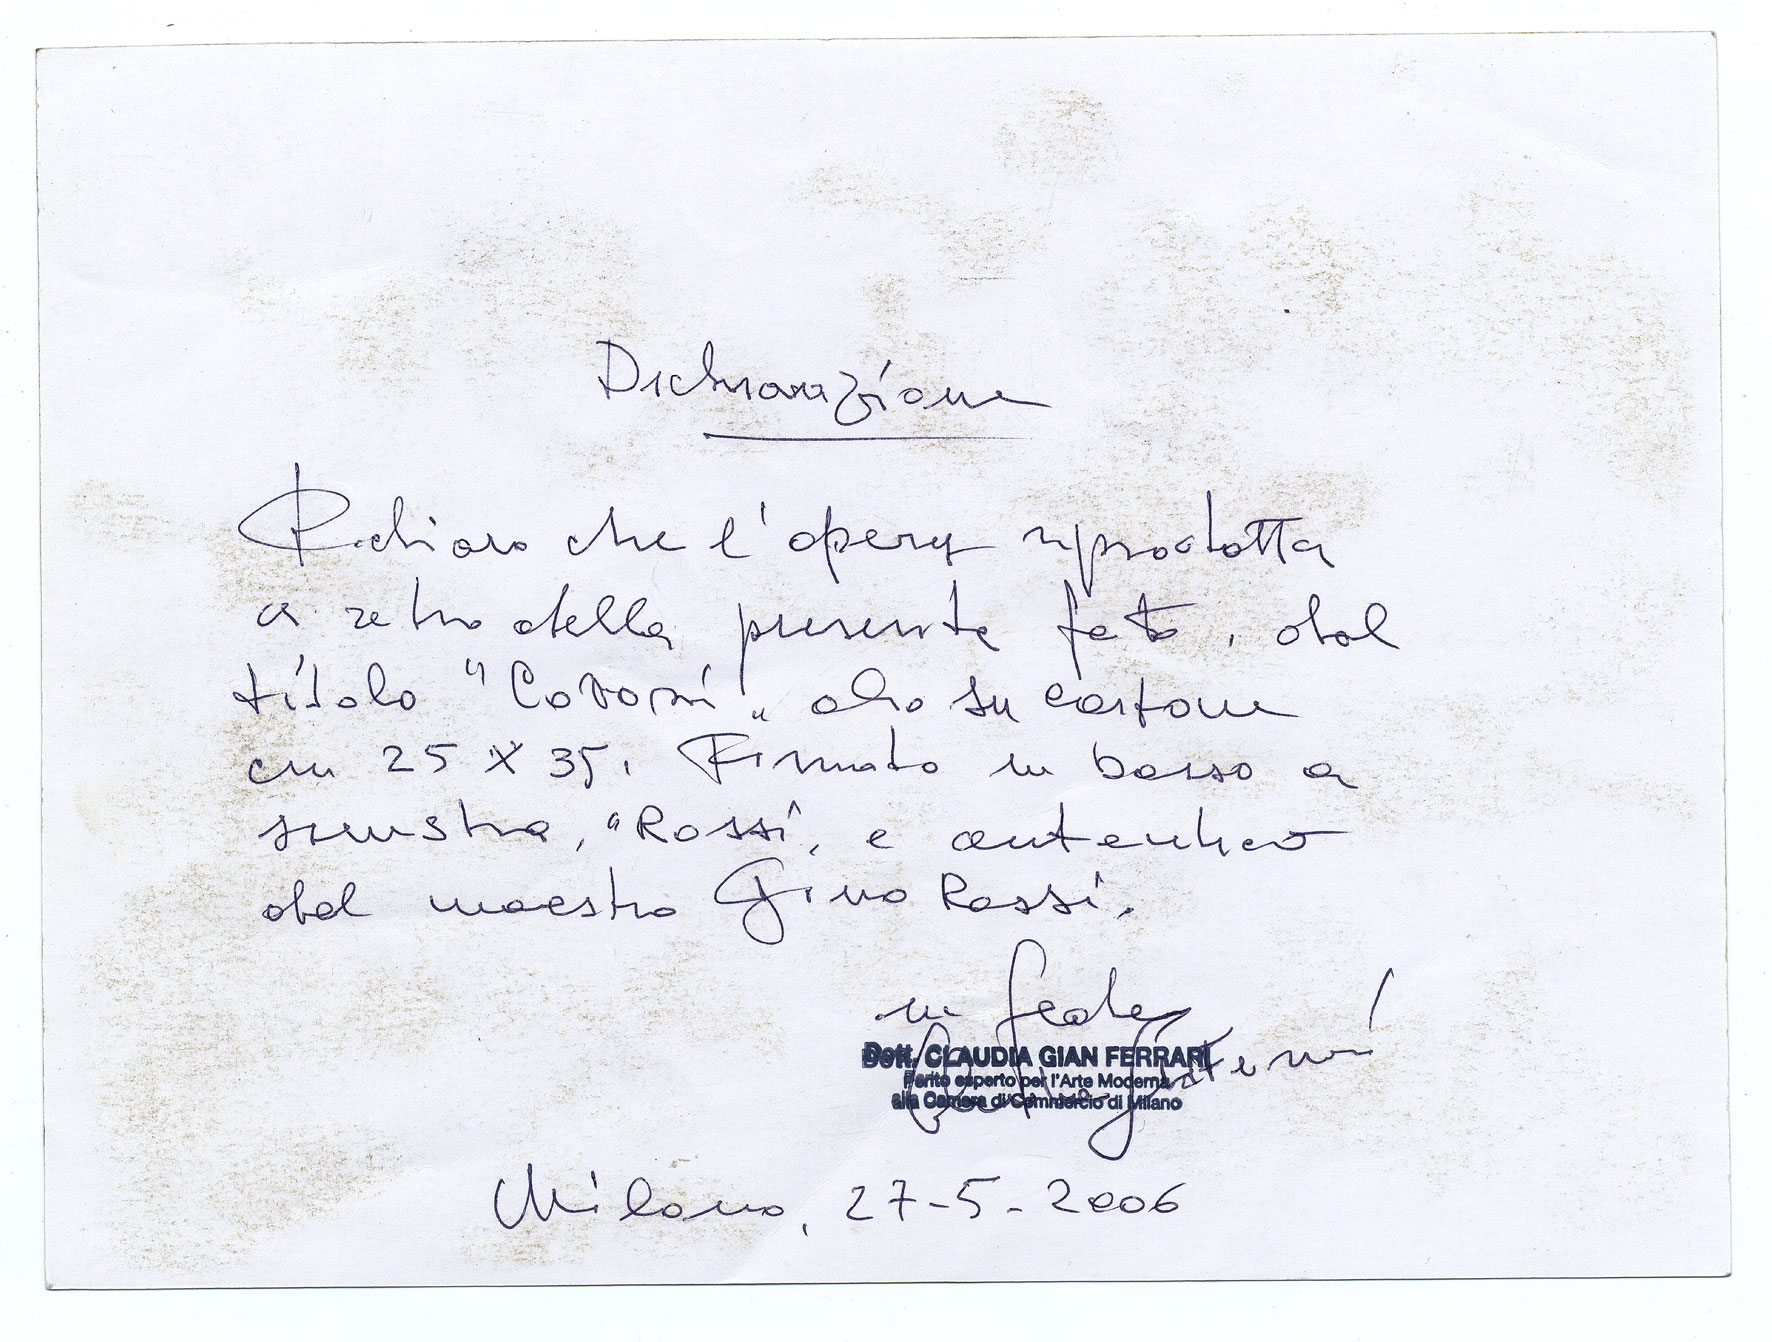 Dichiarazione
Dichiaro che l'opera riprodotta
a retro della presente foto, dal
titolo "Covoni" olio su cartone
cm 25 X 35. Firmato in basso a
sinistra, "Rossi", e autentico
del maestro Gino Rossi.
in fede
Dott. CLAUDIA GIAN FERRARI
Perito esperto per l'Arte Moderna
alla Camera di Commercio di Milano
Milano, 27-5-2006